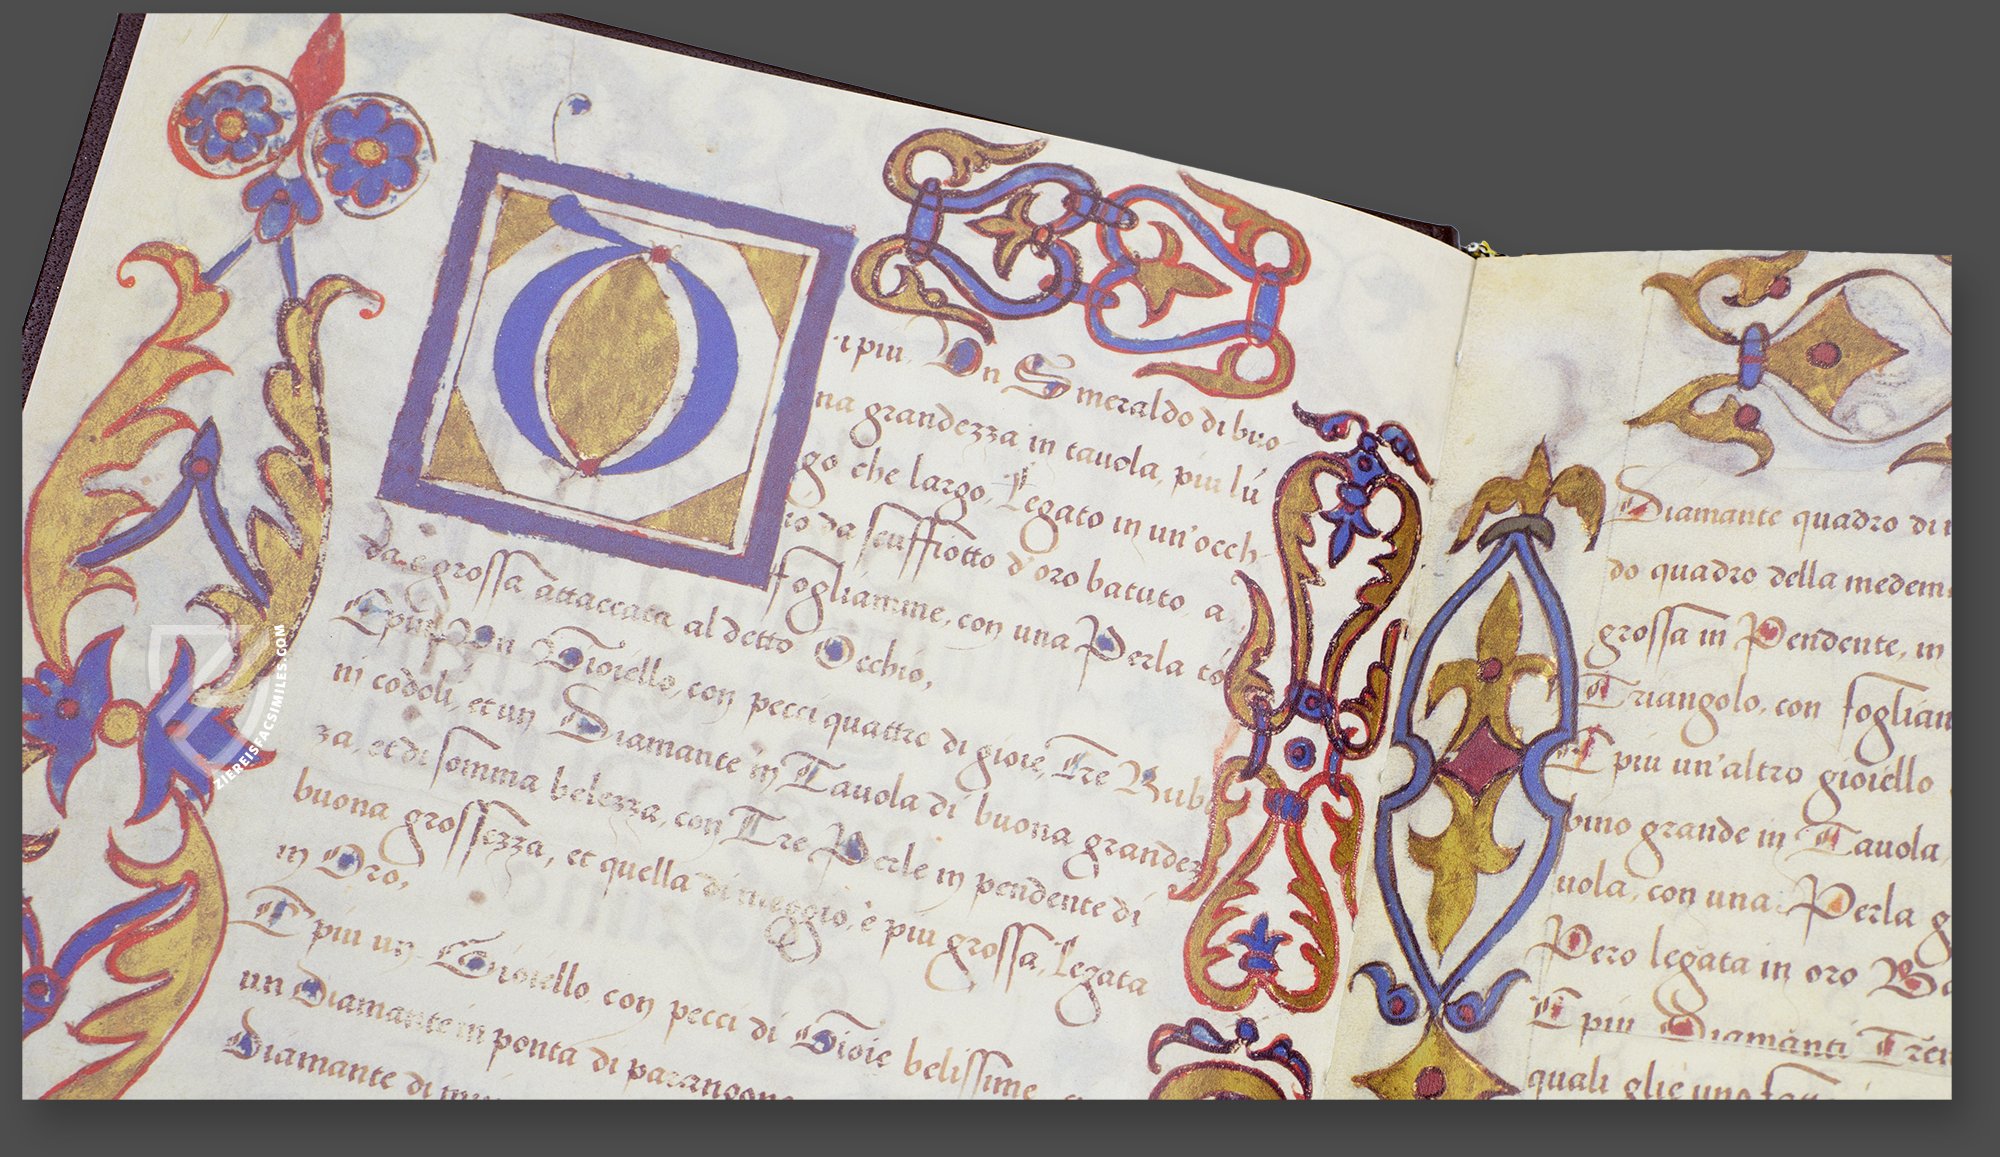 D
i piu, Un Smeraldo di buo
na grandezza in tauola, piu lú
go che largo, Legato in un'occh
io da scuffiotto d'oro batuto, a
fogliamme, con una Perla tó
da, e grossa attaccata al detto Occhio,
E piu Un Gioiello, con pecci quattro di gioie, Tre Rubi
ni codoli, et un Diamante in Tauola di buona grandez
za, et di somma belezza, con Tre Perle in pendente di
buona grossezza, et quella di meggio, è piu grossa, Legata
in Oro,
E piu un Gioiello, con pecci di Gioie belissime
un Diamante in ponta di parangone
Diamante di
Diamante quadro di
do quadro della medem
grossa in Pendente, in
Triangolo, con fogliam
E piu un'altro gioiello
bino grande in Tauola,
uola, con una Perla g
Pero legata in oro Ba
E piu Diamanti Tren
quali glie uno
ZIEREISFACSIMILES.COM